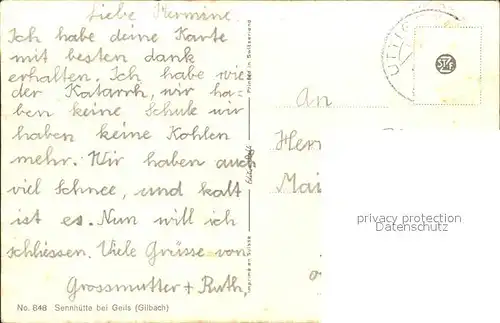 Liebe Hermine.
Ich habe deine Karte
mit besten dank
erhalten. Ich habe wie
der Katarrh, wir ha
ben keine Schule wir
haben keine Kohlen
mehr. Wir haben auch
viel Schnee, und kalt
ist es. Nun will ich
schliessen. Viele Grüsse von
Grossmutter + Ruth,
No. 848 Sennhütte bei Geils (Gilbach)
Printed in Switzerland
Imprimé en Suisse
An
Herr
Mai
privacy protection